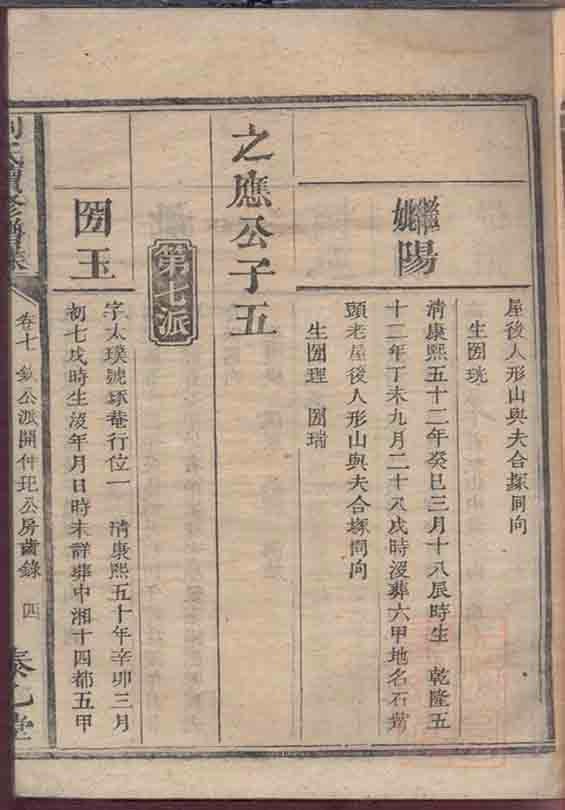 屋後人形山與夫合塚同向
生圀珖
繼姚陽
清康熙五十二年癸巳三月十八辰時生 乾隆五
十二年丁未九月二十八戌時沒葬六甲地名石
頭老屋後人形山與夫合塚同向
生圀理 圀瑞
之應公子五
第七派
圀玉
字太璞號琢菴行位一 清康熙五十年辛卯三月
初七戌時生沒年月日時未詳葬中湘十四都五甲
氏續修譜
卷七 欽公派開仲玘公房齒錄 四
堂